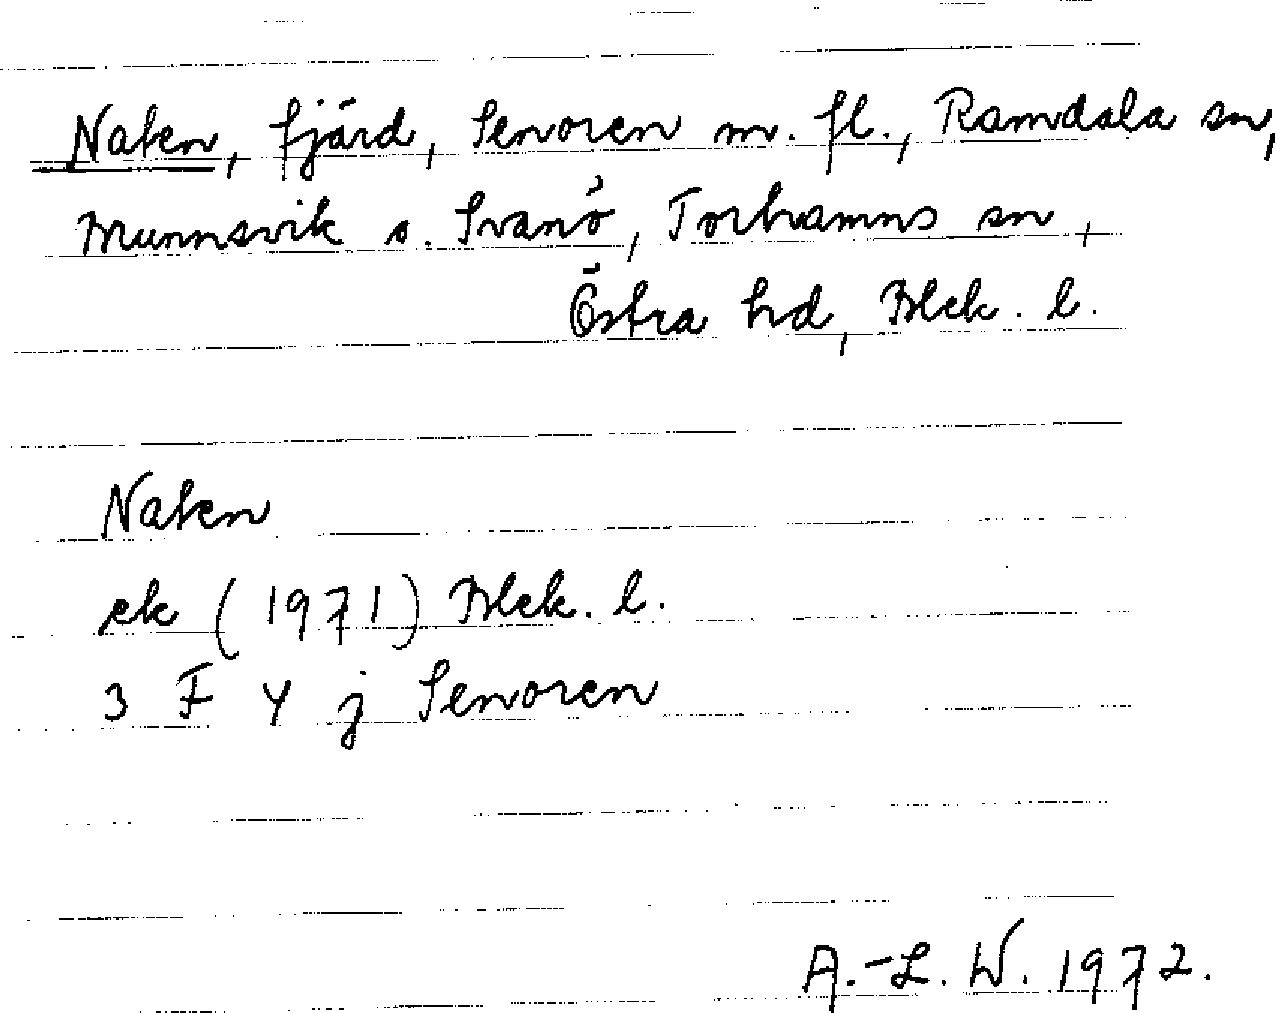 Naten, fjärd, Senoren m. fl., Ramdala sn,
Munnsvik o. Ivanö, Torhamns sn,
Östra hd, Blek. l.
Naten
ek (1971) Blek. l.
3 F Y j Senoren
A.-L. W. 1972.